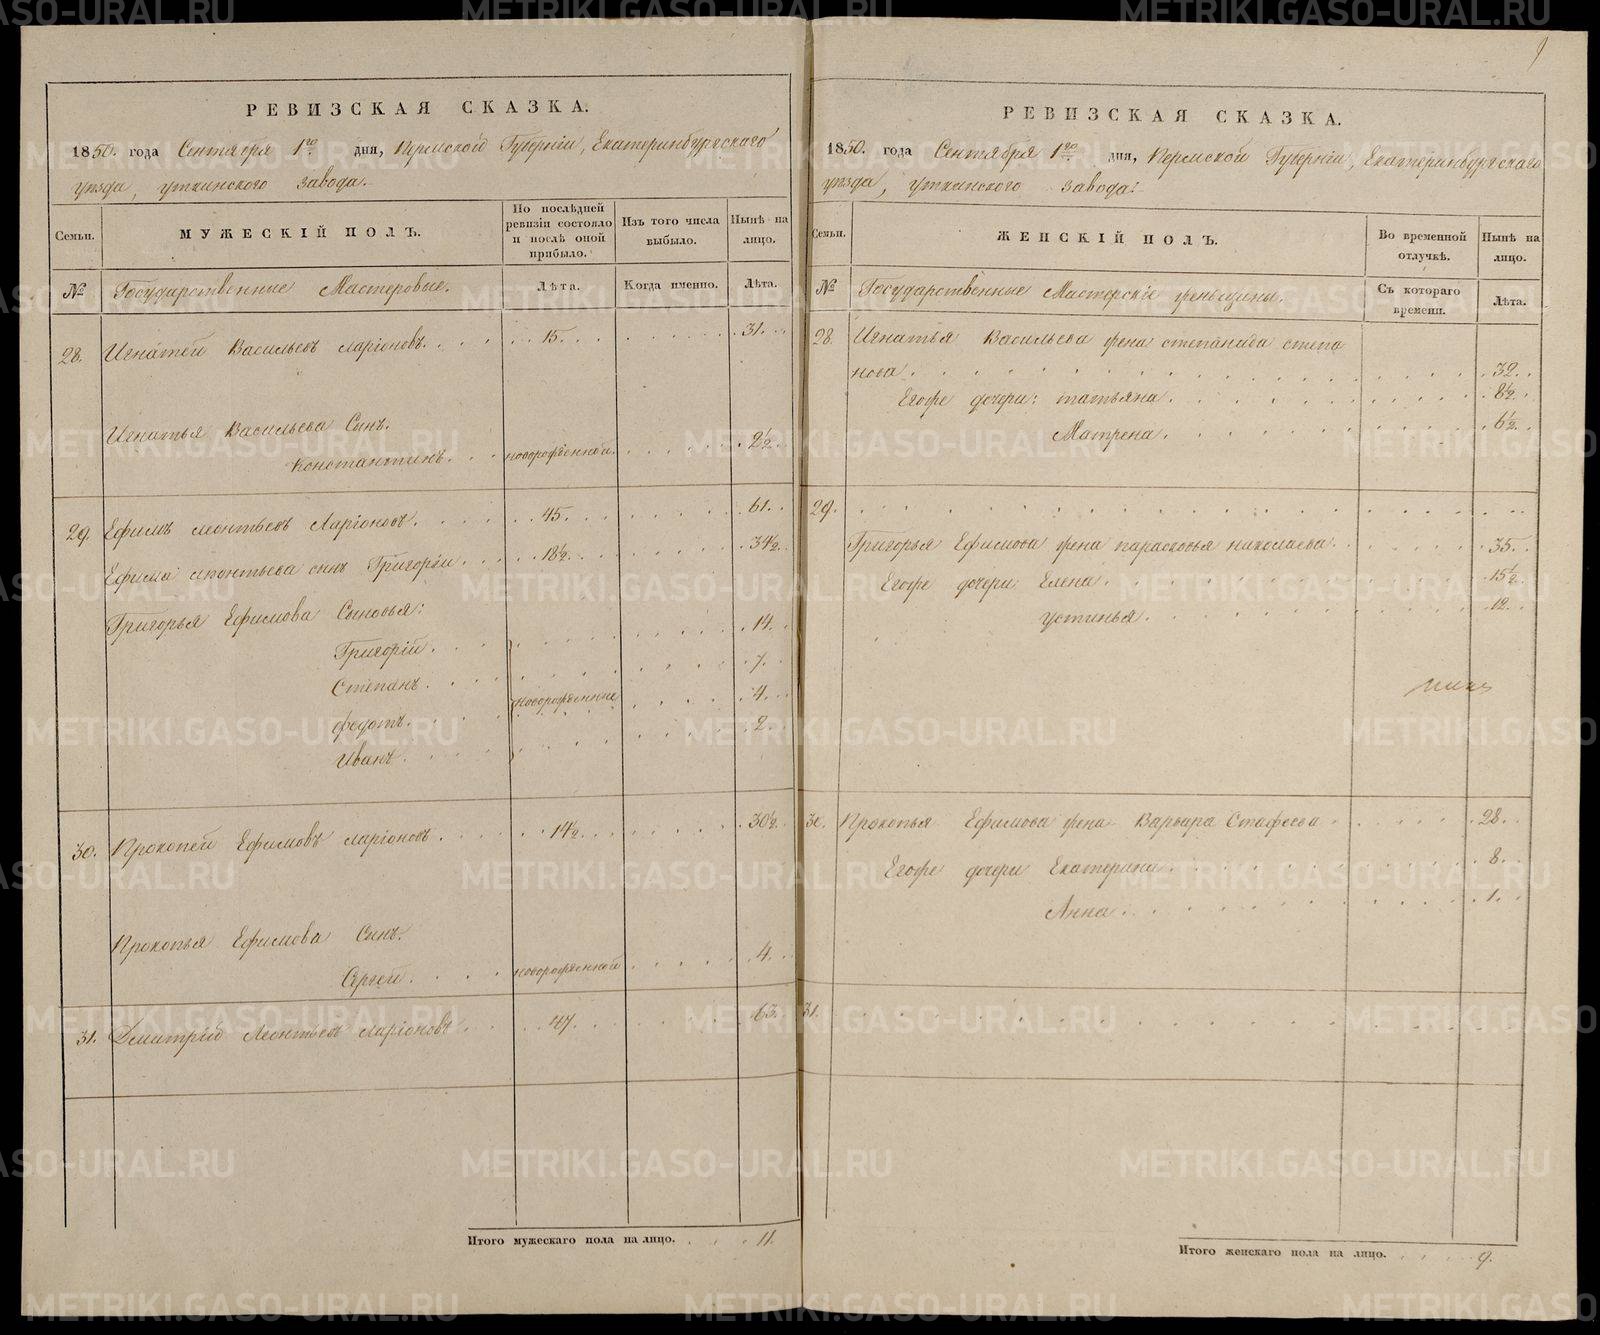 РЕВИЗСКАЯ СКАЗКА.
1850. года Сентября 1го дня, Пермской Губерніи, Екатеринбургскаго
уѣзда, Уткинского завода.
Семьи.
МУЖЕСКІЙ ПОЛЪ.
По послѣдней
ревизіи состояло
и послѣ оной
прибыло.
Изъ того числа
выбыло.
Нынѣ на
лицо.
№
Государственные Мастеровые.
Лѣта.
Когда именно.
Лѣта.
28. Игнатей Васильевъ Ларіоновъ. 15. 31.
Игнатья Васильева Сынъ.
Константинъ. новорожденной. 2½.
29. Ефимъ Леонтьевъ Ларіоновъ. 45. 61.
Ефима Леонтьева сынъ Григорій 18½. 34½.
Григорья Ефимова Сыновья:
Григорій. 14.
Степанъ. 7.
новорожденные
Федотъ. 4.
Иванъ. 2.
30. Прокопей Ефимовъ Ларіоновъ. 14½. 30½.
Прокопья Ефимова Сынъ.
Сергей. новорожденной 4.
31. Дмитрій Леонтьевъ Ларіоновъ. 47. 63.
Итого мужескаго пола на лицо. 11.
9
РЕВИЗСКАЯ СКАЗКА.
1850. года Сентября 1го дня, Пермской Губерніи, Екатеринбургскаго
уѣзда, Уткинского завода.
Семьи.
ЖЕНСКІЙ ПОЛЪ.
Во временной
отлучкѣ.
Нынѣ на
лицо.
№
Государственные Мастерскіе женьщины.
Съ котораго
времени.
Лѣта.
28. Игнатья Васильева жена Степанида Степа
нова. 32.
Егоже дочери: Татьяна. 8½.
Матрена. 6½.
29.
Григорья Ефимова жена Парасковья Николаева. 35.
Егоже дочери: Елена. 15½.
Устинья. 12.
30. Прокопья Ефимова жена Варвара Стафеева 28.
Егоже дочери Екатерина. 8.
Анна. 1.
31.
Итого женскаго пола на лицо. 9.
METRIKI.GASO-URAL.RU